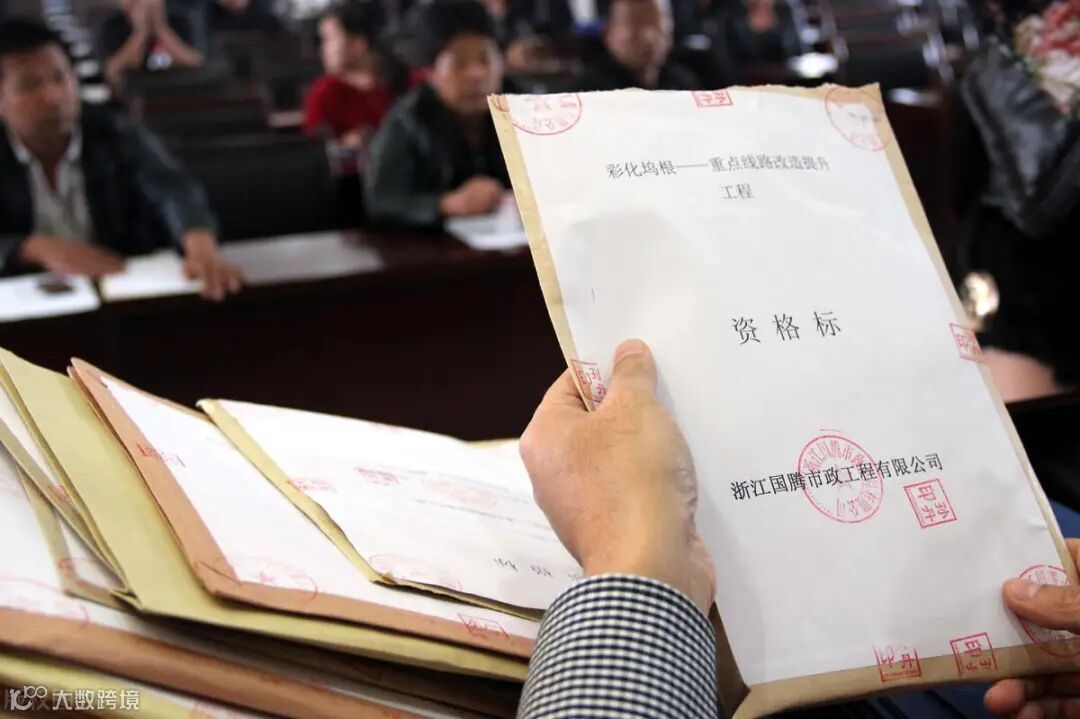 彩化坞根——重点线路改造提升
工程
资格标
浙江国腾市政工程有限公司
孙丹
印
大数跨境